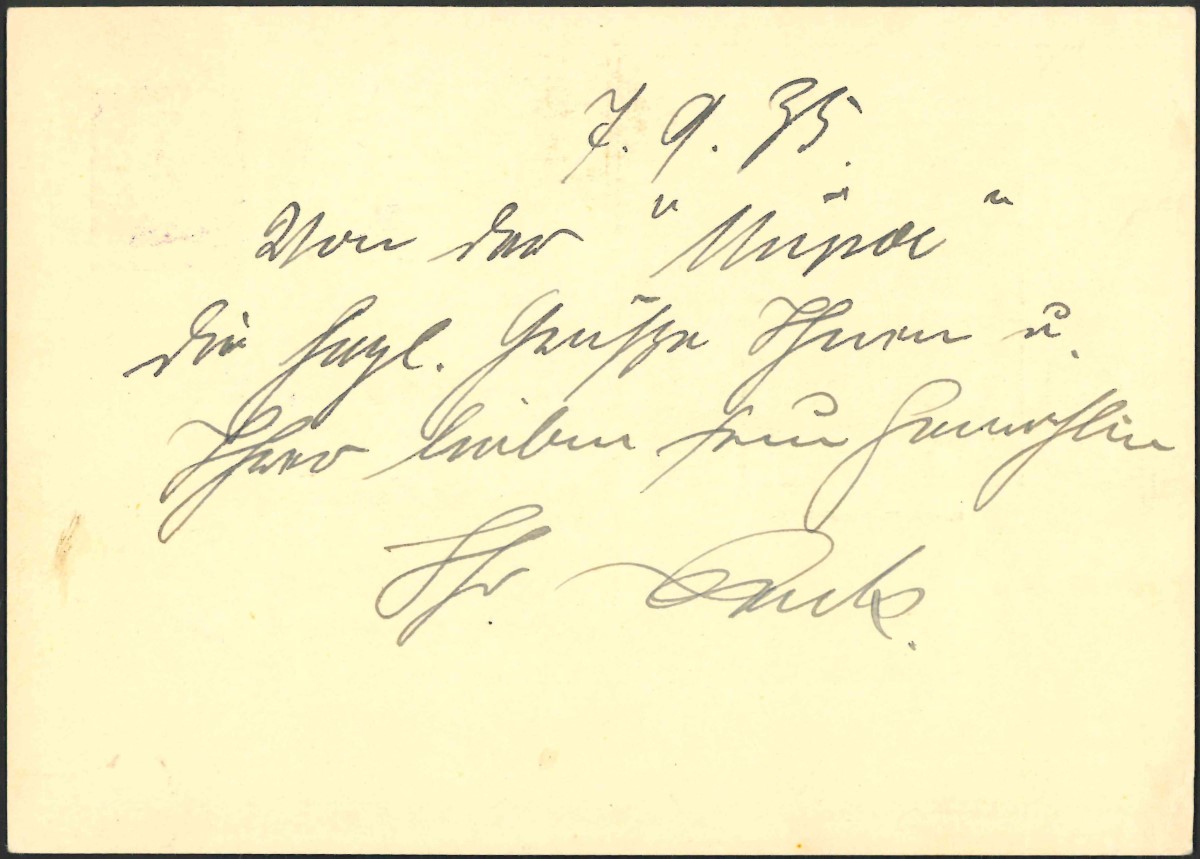 7. 9. 35.
Von der
die herzl. Grüße Ihnen u.
Ihrer lieben Frau Gemahlin
Ihr